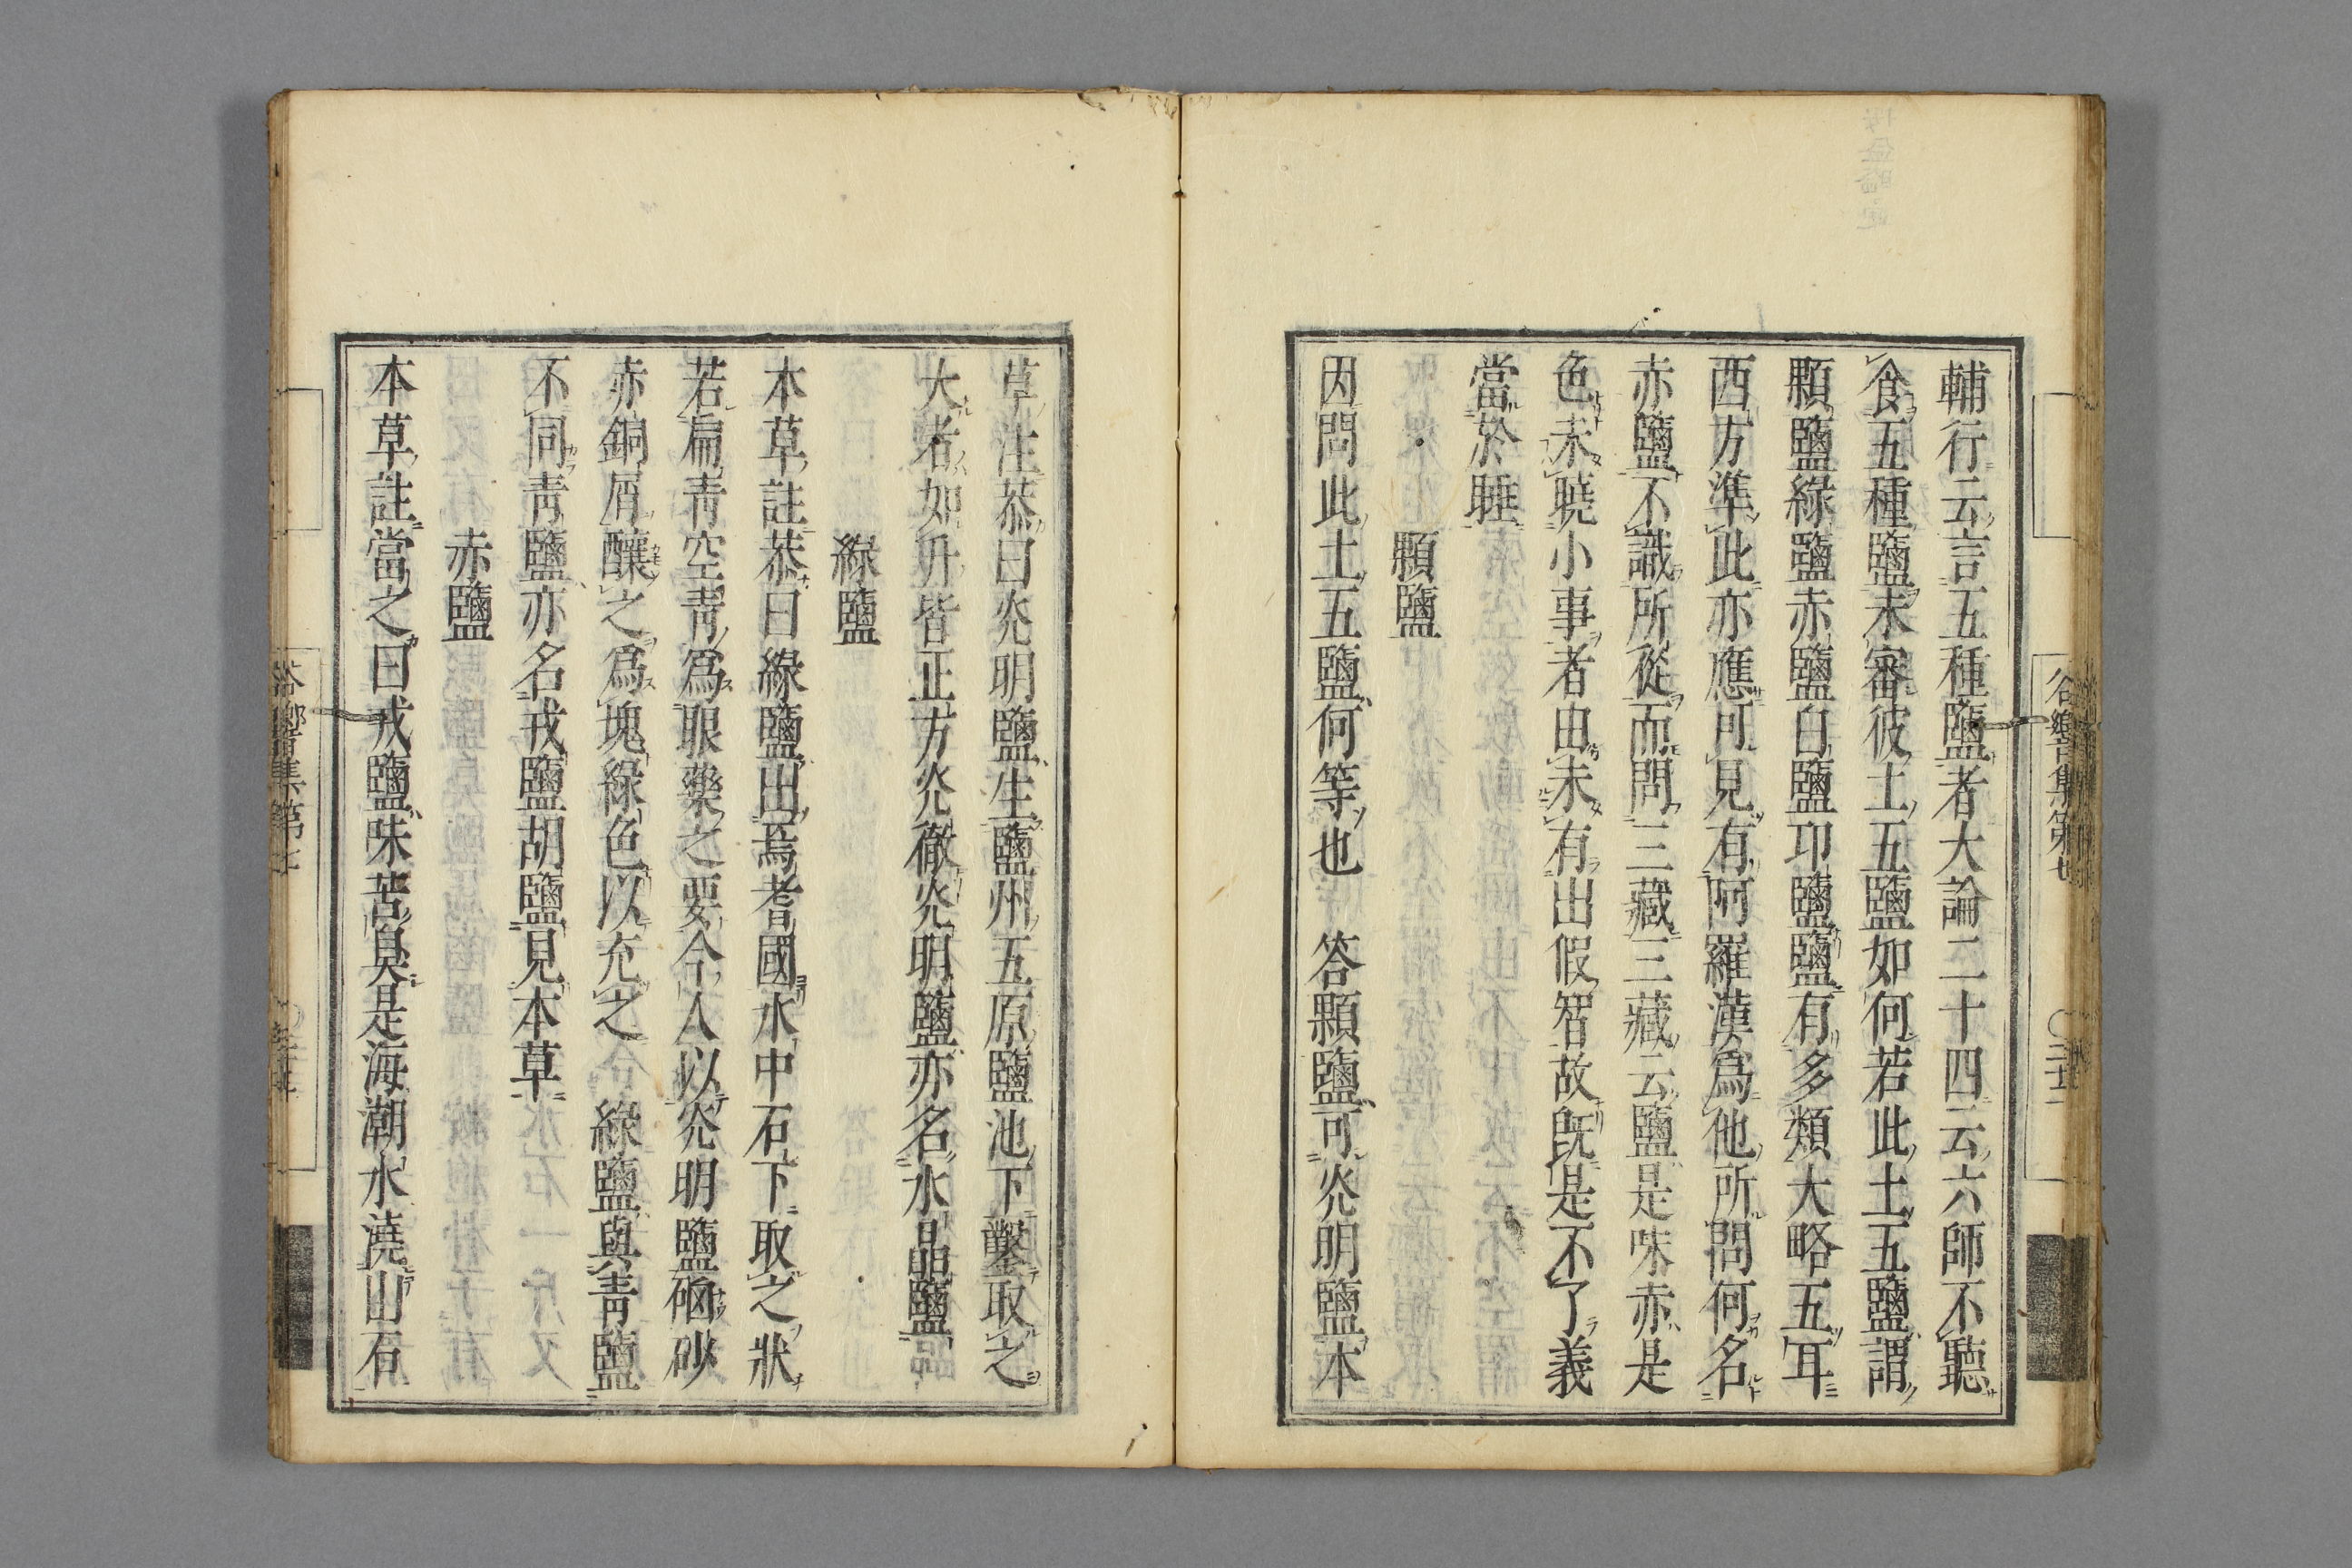 輔行云言五種鹽者大論二十四云六師不聽
食五種鹽未審彼土五鹽如何若此土五鹽謂
顆鹽綠鹽赤鹽白鹽印鹽鹽有多類大略五耳
西方準此亦應可見有阿羅漢爲他所問何名
赤鹽不識所從而問三藏三藏云鹽是味赤是
色未曉小事者由未有出假智故既是不了義
當於睡
顆鹽
因問此土五鹽何等也　答顆鹽可炗明鹽本
草注恭曰炗明鹽生鹽州五原鹽池下鑿取之
大者如升皆正方炗徹炗明鹽亦名水晶鹽
綠鹽
本草註恭曰綠鹽出焉耆國水中石下取之狀
若扁青空青爲眼藥之要今人以炗明鹽硇砂
赤銅屑釀之爲塊綠色以充之　綠鹽與青鹽
不同青鹽亦名戎鹽胡鹽見本草
赤鹽
本草註當之曰戎鹽味苦臭是海潮水澆山石
谷響集第七